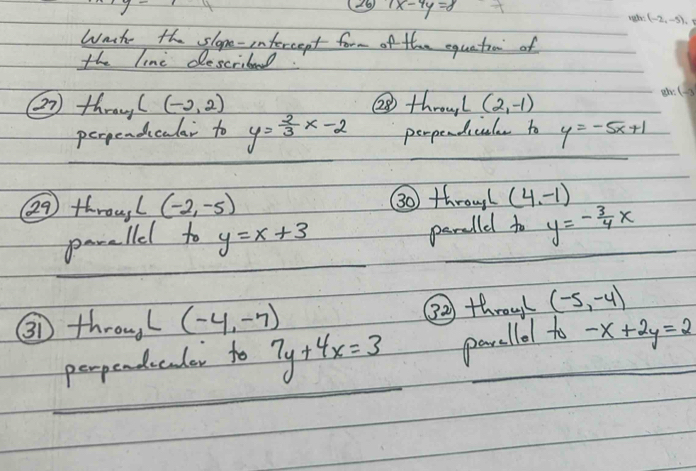 (26) 7x-4y=8
Write the slope-intercept form of the equation of
the line described.
(27) through (-2,2)
perpendicular to y=2/3 x-2
(28) through (2,-1)
perpendicular to y=-5x+1
(29) through (-2,-5)
parallel to y=x+3
(30) through (4,-1)
parallel to y=-3/4 x
(31) through (-4,-7)
perpendicular to 7y+4x=3
(32) through (-5,-4)
parallel to -x+2y=2